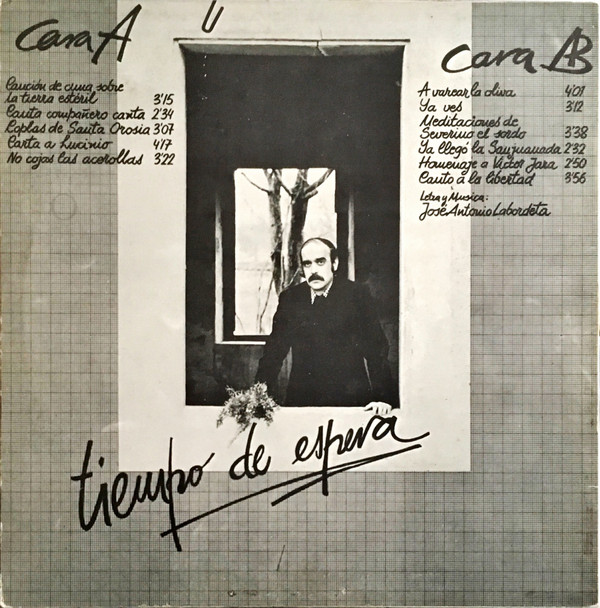 Cara A
Canción de cuna sobre
la tierra estéril 3'15
Canta compañero canta 2'34
Coplas de Santa Orosia 3'07
Carta a Lucinio 4'17
No cojas las acerollas 3'22
Cara B
A varear la oliva 4'01
Ya ves 3'12
Meditaciones de
Severino el sordo 3'38
Ya llegó la Sanjuanada 2'32
Homenaje a Victor Jara 2'50
Canto a la libertad 3'56
Letra y Musica:
José Antonio Labordeta
tiempo de espera